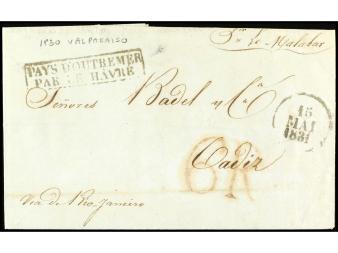 1830 VALPARAISO
Pr. Le Malabar
PAYS D'OUTREMER
PAR LE HÂVRE
Señores Badel y Ca
15
MAI
1831
Cadiz
6R
Via de Rio Janeiro